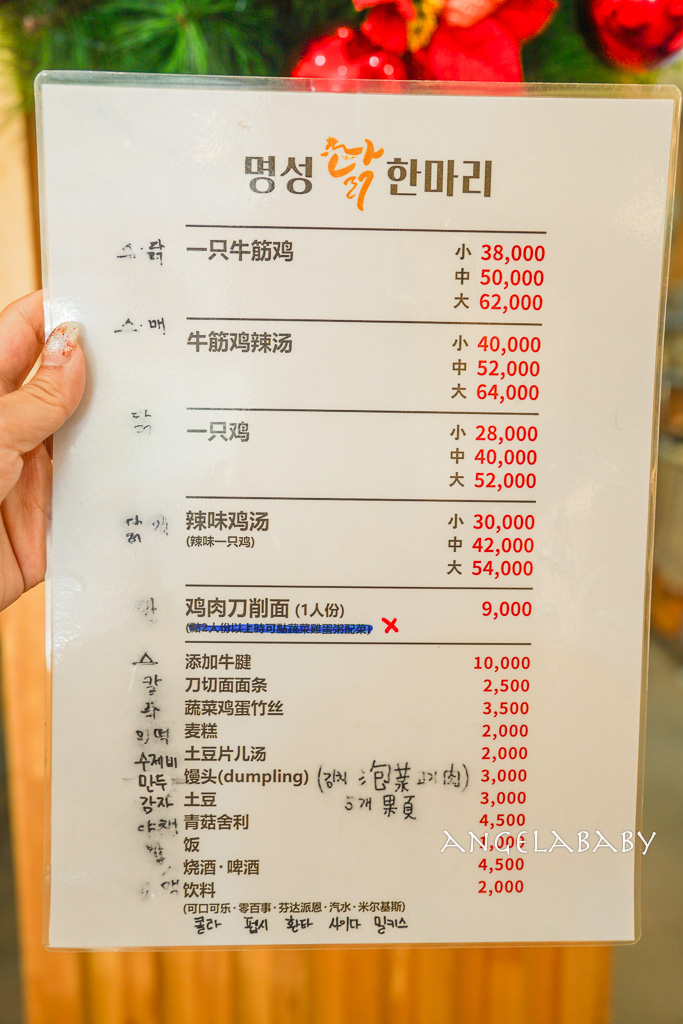 명성 닭 한마리
스·닭 一只牛筋鸡 小 38,000
中 50,000
大 62,000
스·매 牛筋鸡辣汤 小 40,000
中 52,000
大 64,000
닭 一只鸡 小 28,000
中 40,000
大 52,000
辣味鸡汤 小 30,000
(辣味一只鸡) 中 42,000
大 54,000
鸡肉刀削面 (1人份) 9,000
(點2人份以上時可點蔬菜雞蛋粥配菜) ×
스 添加牛腱 10,000
칼 刀切面面条 2,500
蔬菜鸡蛋竹丝 3,500
떡 麦糕 2,000
수제비 土豆片儿汤 2,000
만두 馒头(dumpling) (김치 泡菜 고기 肉) 3,000
감자 土豆 5개 果頁 3,000
야채 青菇舍利 4,500
밥 饭 1,000
烧酒·啤酒 4,500
饮料 2,000
(可口可乐·零百事·芬达派恩·汽水·米尔基斯)
콜라 펩시 환타 사이다 밀키스
ANGELABABY